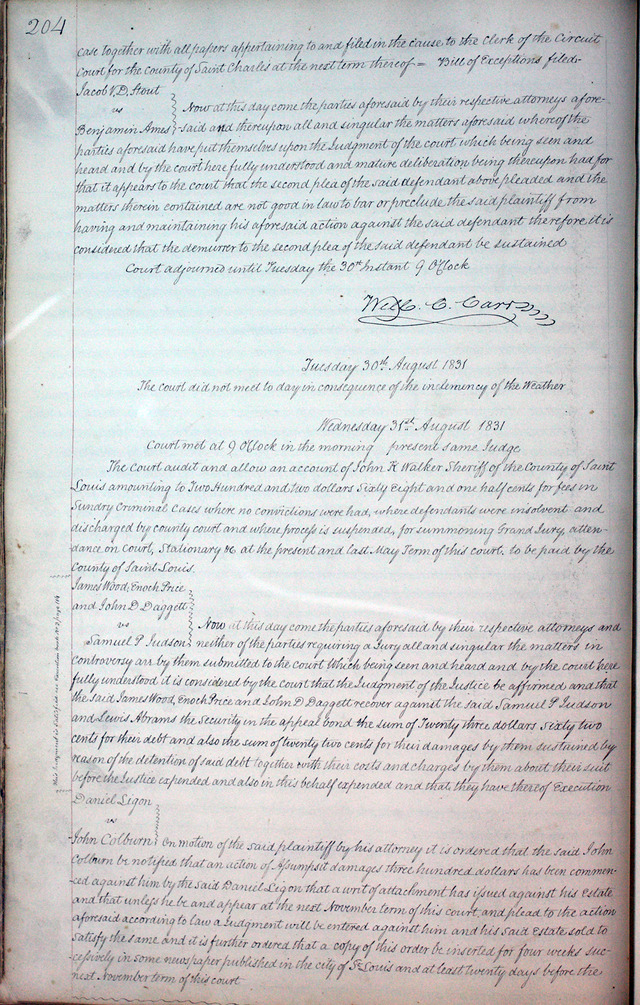 204
case together with all papers appertaining to and filed in the cause to the Clerk of the Circuit
Court for the County of Saint Charles at the next term thereof = Bill of Exceptions filed.
Jacob V. D. Stout
vs
Now at this day come the parties aforesaid by their respective attorneys afore-
Benjamin Ames said and thereupon all and singular the matters aforesaid whereof the
parties aforesaid have put themselves upon the Judgment of the court which being seen and
heard and by the court here fully understood and mature deliberation being thereupon had for
that it appears to the court that the second plea of the said defendant above pleaded and the
matters therein contained are not good in law to bar or preclude the said plaintiff from
having and maintaining his aforesaid action against the said defendant therefore it is
considered that the demurrer to the second plea of the said defendant be sustained
Court adjourned until Tuesday the 30th Instant 9 OClock
Will. C. Carr
Tuesday 30th August 1831
The court did not meet to day in consequence of the inclemency of the Weather
Wednesday 31st August 1831
Court met at 9 OClock in the morning present same Judge
The Court audit and allow an account of John K Walker Sheriff of the County of Saint
Louis amounting to Two Hundred and two dollars Sixty Eight and one half cents for fees in
Sundry Criminal Cases where no convictions were had, where defendants were insolvent and
discharged by county court and where process is suspended, for summoning Grand Jury, atten-
dance on Court, Stationary &c at the present and last May Term of this court, to be paid by the
County of Saint Louis.
James Wood, Enoch Price
and John D Daggett
vs
Now at this day come the parties aforesaid by their respective attorneys and
Samuel P Judson neither of the parties requiring a Jury all and singular the matters in
controversy are by them submitted to the court which being seen and heard and by the court here
fully understood it is considered by the court that the Judgment of the Justice be affirmed and that
the said James Wood, Enoch Price and John D Daggett recover against the said Samuel P Judson
and Lewis Abrams the Security in the appeal bond the sum of Twenty three dollars Sixty two
cents for their debt and also the sum of twenty two cents for their damages by them sustained by
reason of the detention of said debt together with their costs and charges by them about their suit
before the Justice expended and also in this behalf expended and that they have thereof Execution
This Judgment is satisfied see Execution book
Daniel Ligon
vs
John Colburn On motion of the said plaintiff by his attorney it is ordered that the said John
Colburn be notified that an action of Assumpsit damages three hundred dollars has been commen-
ced against him by the said Daniel Ligon that a writ of attachment has issued against his Estate
and that unless he be and appear at the next November term of this court, and plead to the action
aforesaid according to law a Judgment will be entered against him and his said Estate sold to
satisfy the same and it is further ordered that a copy of this order be inserted for four weeks suc-
cessively in some newspaper published in the city of St Louis and at least twenty days before the
next November term of this court